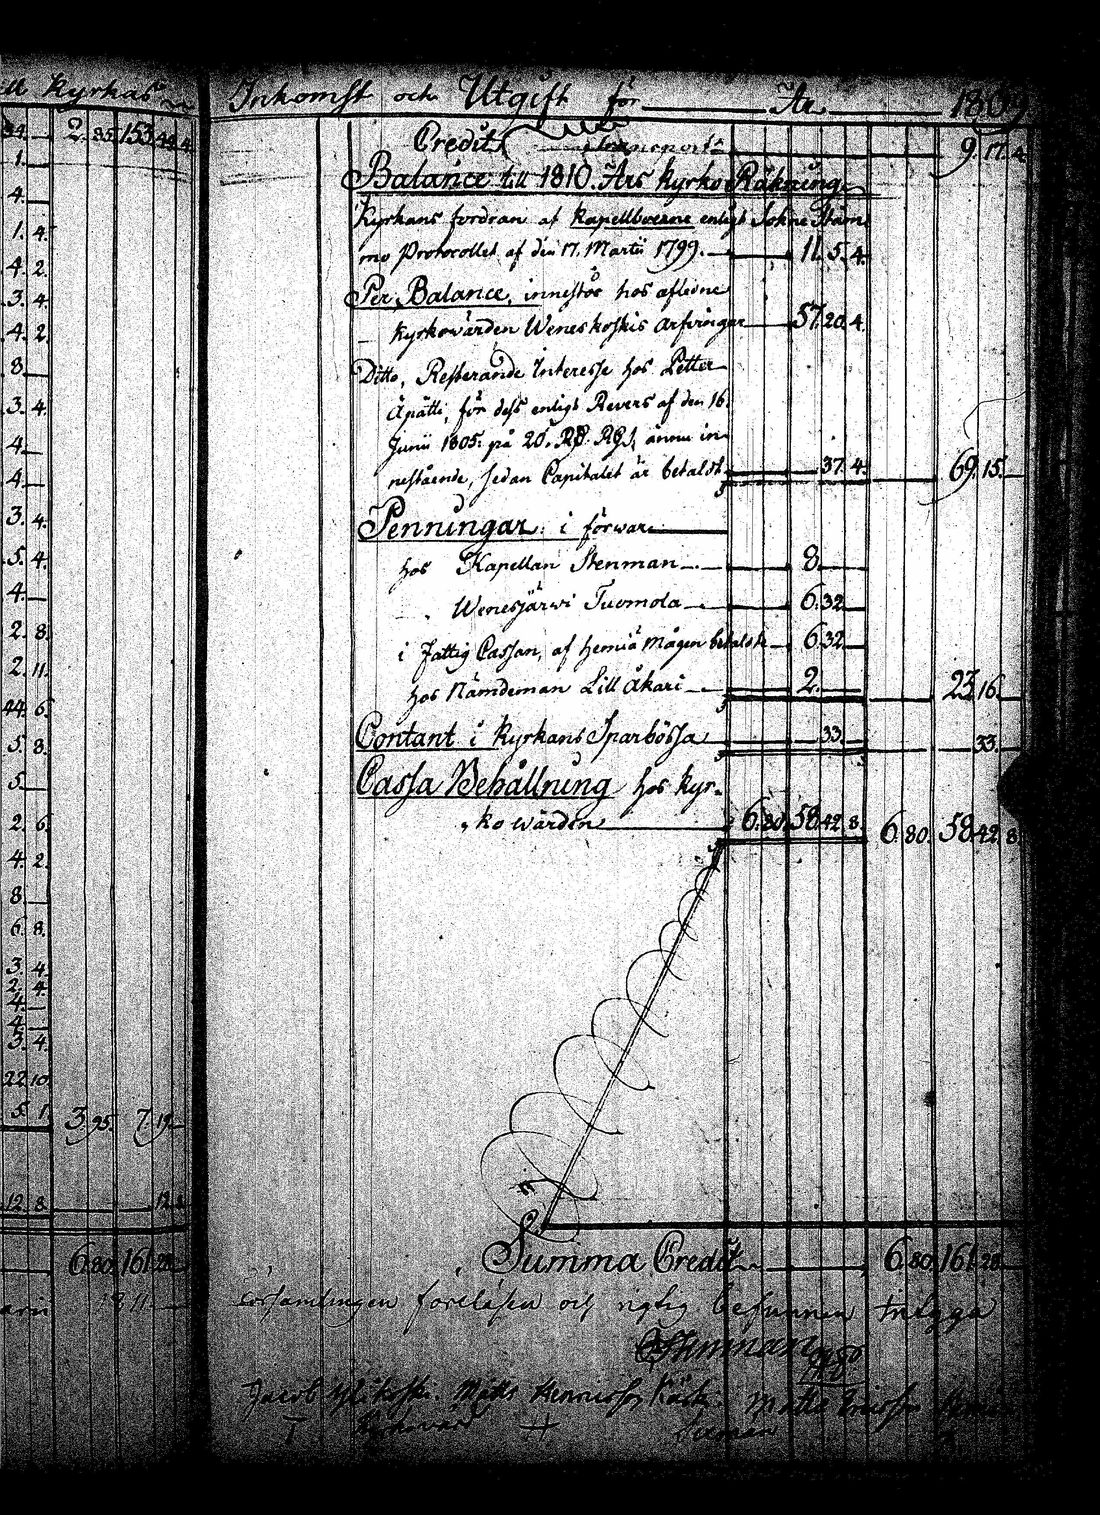 ill Kyrkas
34. — 2. 35. 153. 44. 4.
1. —
4. —
1. 4.
4. 2.
3. 4.
4. 2.
8. —
3. 4.
4. —
4. —
3. 4.
5. 4.
4. —
2. 8.
2. 11.
44. 6.
5. 8.
5. —
2. 6.
4. 2.
8. —
6. 8.
3. 4.
2. 4.
4. —
4. —
3. 4.
22. 10.
5. 1. 3. 95. 7. 19. —
12. 8. 12. 8.
6. 80. 161. 28. —
Inkomst och Utgift för — År — 1809
Credit Transport 9. 17. 4.
Balance till 1810. Års Kyrko Räkning
Kyrkans fordran af Kapellboerne enligt Sokne Stäm
mo Protocollet af den 17. Martii 1799. — 11. 5. 4.
Per Balance, innestår hos afledne
Kyrkowärden Weneskoskis Arfvingar — 57. 20. 4.
Ditto, Resterande Interesse hos Petter
Äpätti, för dess enligt Revers af den 16.
Junii 1805. på 20. Rd. Rgs, ännu in-
nestående, sedan Capitalet är betaldt. — 37. 4. 69. 15. —
Penningar i förwar —
hos Kapellan Stenman — 8. —
Wenesjärwi Tuomola — 6. 32. —
i Fattig Cassan, af Hemiä Mågen betaldt — 6. 32. —
hos Nämdeman Lill Åkari — 2. — 23. 16. —
Contant i Kyrkans Sparbössa — 33. — 33. —
Cassa Behållning hos Kyr-
ko wärden — 6. 80. 58. 42. 8. 6. 80. 58. 42. 8.
Summa Credit — 6. 80. 161. 28. —
församlingen föreläsen och rigtig befunnen intyga
Stenman
Jacob Ylikoski. Matts Henricsson Matts Ericsson
Kyrkovärd